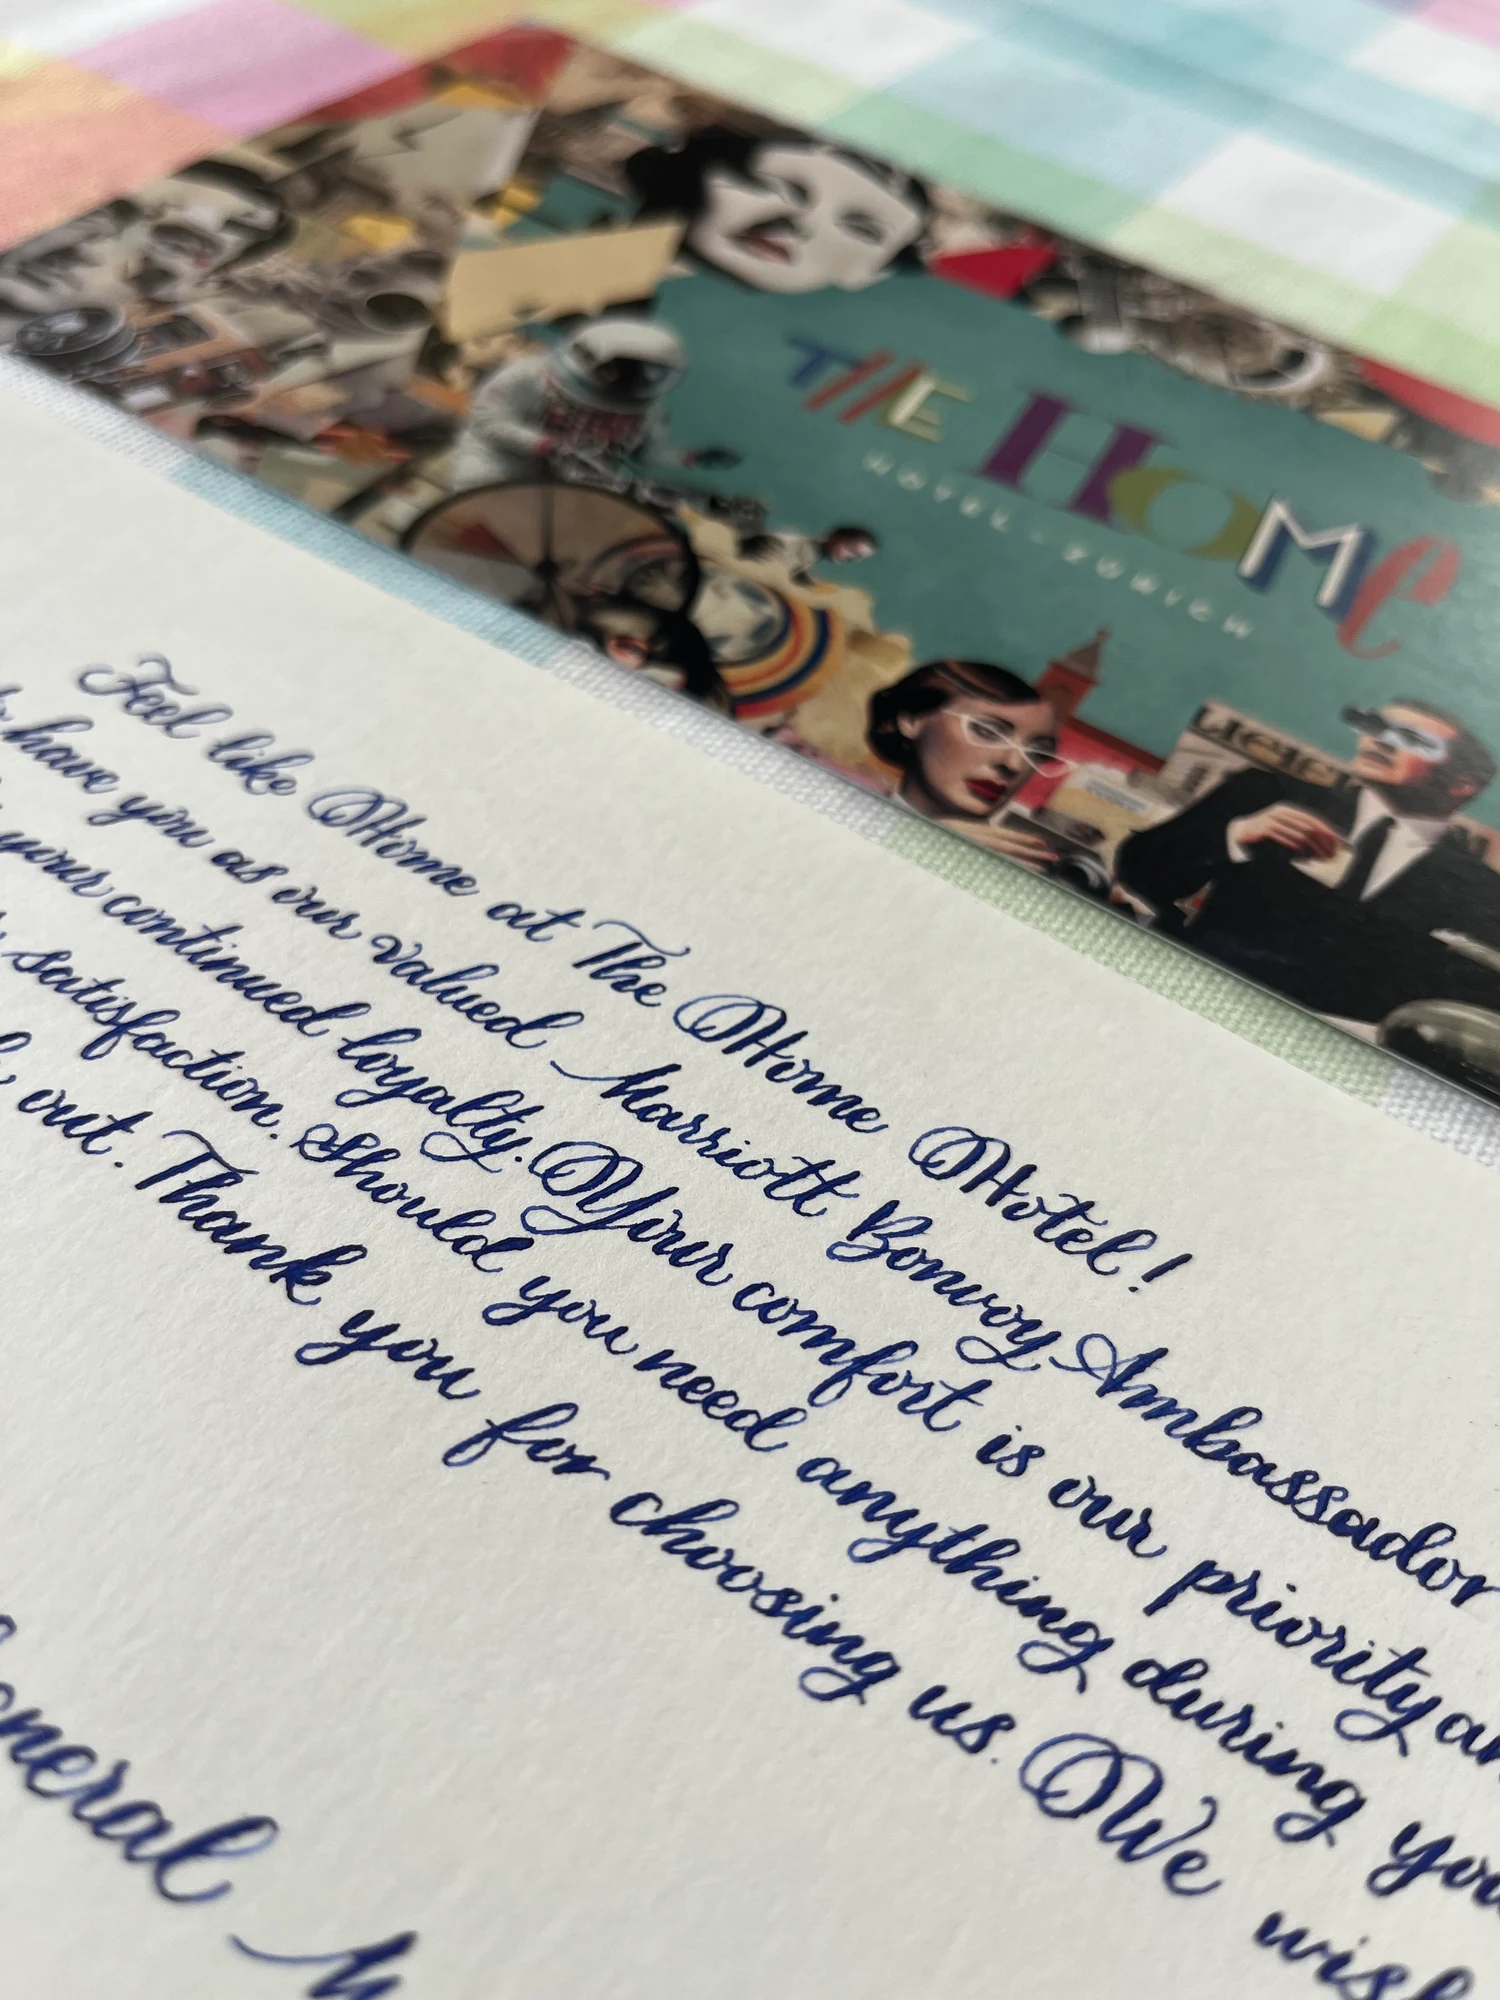 THE HOME
HOTEL · ZÜRICH
Feel like Home at The Home Hotel!
have you as our valued Marriott Bonvoy Ambassador
your continued loyalty. Your comfort is our priority
satisfaction. Should you need anything during
out. Thank you for choosing us. We wish